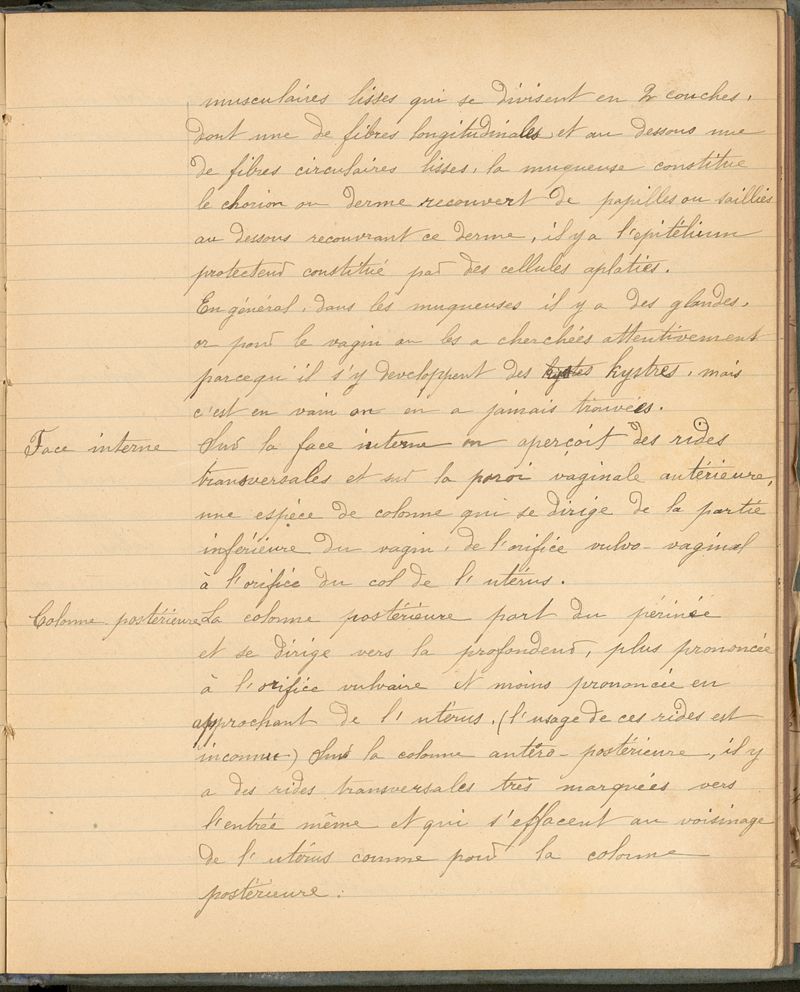 musculaires lisses qui se divisent en 2 couches,
dont une de fibres longitudinales et au dessous une
de fibres circulaires lisses, la muqueuse constitue
le chorion ou derme recouvert de papilles ou saillies
au dessous recouvrant ce derme, il y a l'epitélium
protecteur constitué par des cellules aplaties.
En général, dans les muqueuses il y a des glandes,
or pour le vagin on les a cherchées attentivement
parcequ'il s'y developpent des kystes kystres, mais
c'est en vain on en a jamais trouvées.
Face interne Sur la face interne on aperçoit des rides
transversales et sur la paroi vaginale antérieure,
une espèce de colonne qui se dirige de la partie
inférieure du vagin, de l'orifice vulvo-vaginal
à l'orifice du col de l'utérus.
Colonne postérieure La colonne postérieure part du périnée
et se dirige vers la profondeur, plus prononcée
à l'orifice vulvaire et moins prononcée en
approchant de l'utérus. (l'usage de ces rides est
inconnu) Sur la colonne antéro-postérieure, il y
a des rides transversales très marquées vers
l'entrée même et qui s'effacent au voisinage
de l'utérus comme pour la colonne
postérieure.